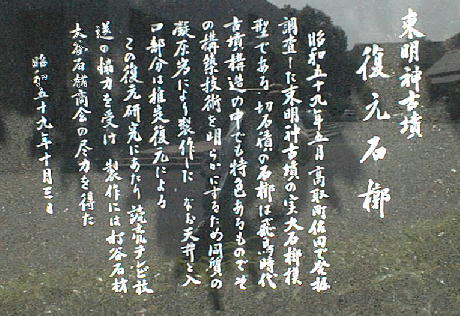 東明神古墳
復元石槨
昭和五十九年五月高取町佐田で発掘
調査した束明神古墳の実大石槨模
型である 切石積の石槨は飛鳥時代
古墳構造の中でも特色あるもので そ
の構築技術を明らかにするため同質の
凝灰岩により製作した なお天井と入
口部分は推定復元による
この復元研究にあたり読売テレビ放
送の協力を受け 製作には村谷石材
大谷石材商会の尽力を得た
昭和五十九年十月三日